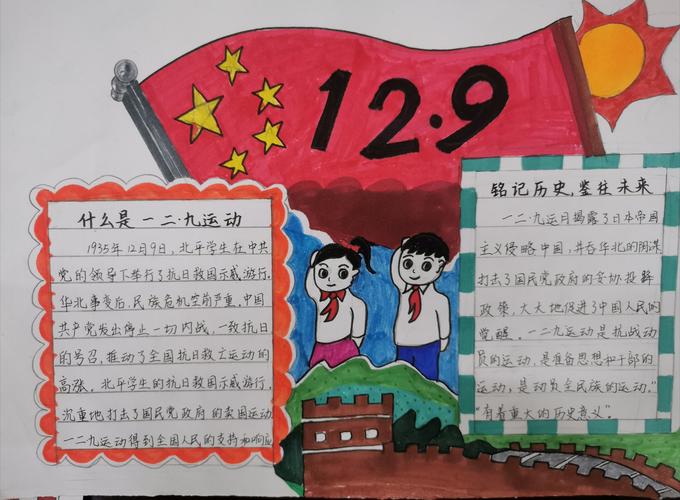 12·9
什么是一二·九运动
1935年12月9日，北平学生在中共
党的领导下举行了抗日救国示威游行.
华北事变后，民族危机空前严重.中国
共产党发出停止一切内战，一致抗日
的号召，推动了全国抗日救亡运动的
高涨。北平学生的抗日救国示威游行.
沉重地打击了国民党政府的卖国运动
一二九运动得到全国人民的支持和响应
铭记历史,鉴往未来
一二.九运月揭露了日本帝国
主义侵略中国,并吞华北的阴谋
打击了国民党政府的妥协投降
政策，大大地促进了中国人民的
觉醒。一二九运动是抗战动
员的运动，是准备思想和干部的
运动，是动员全民族的运动."
"有着重大的历史意义"。